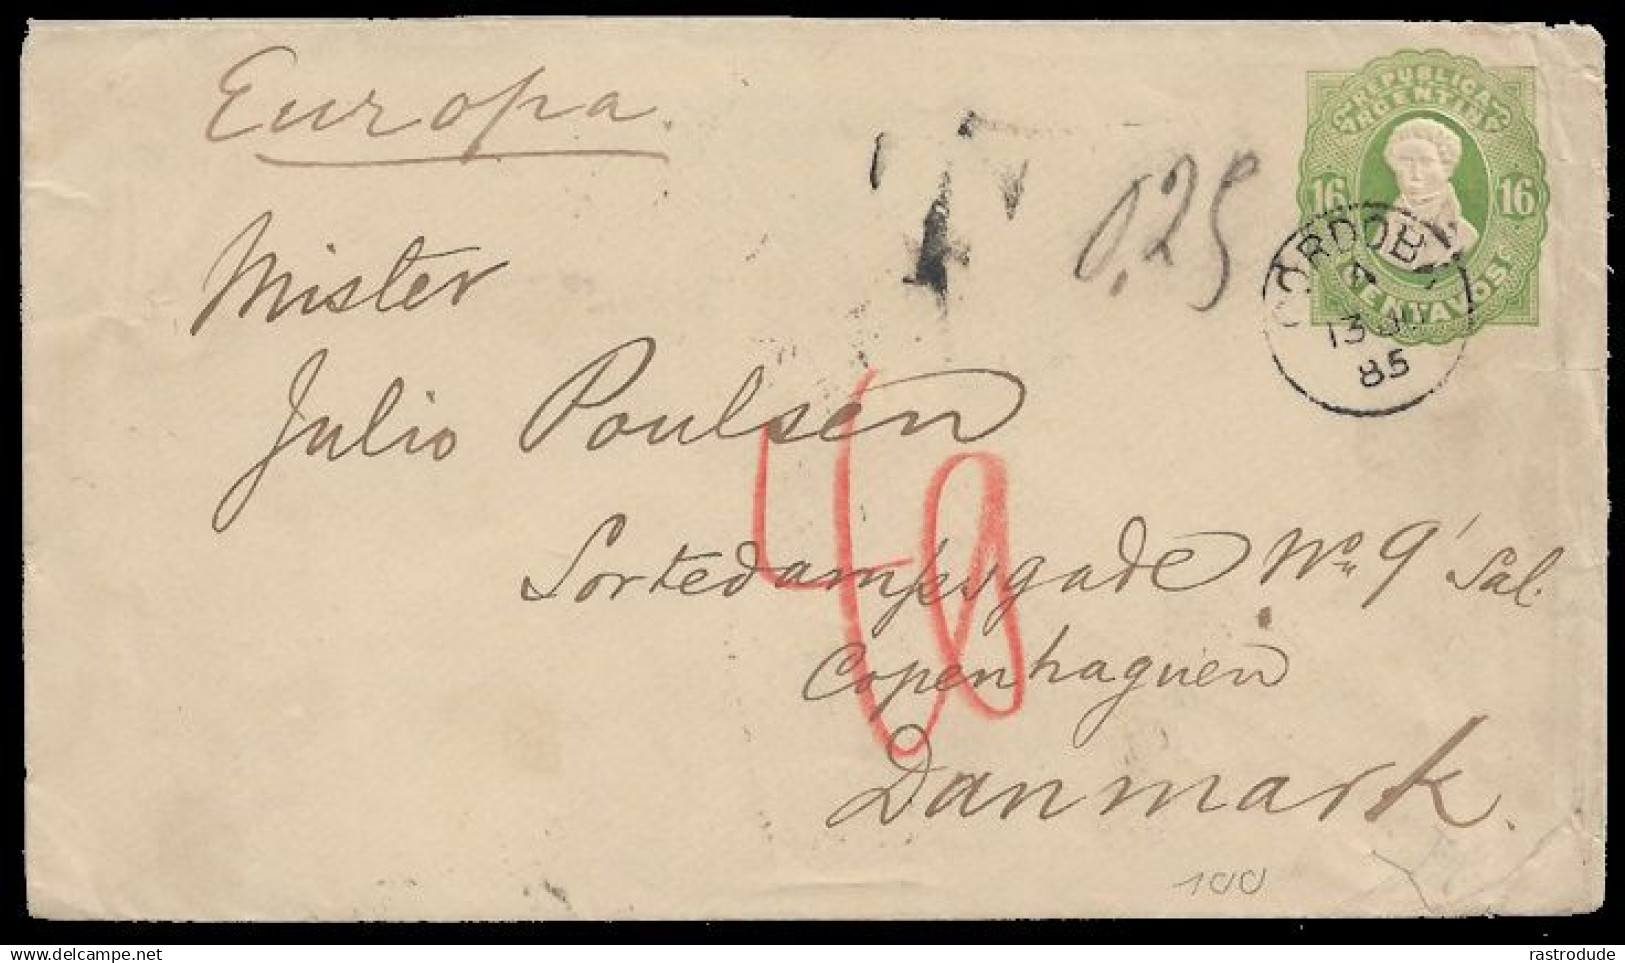 Europa
REPUBLICA
ARGENTINA
16 16
CENTAVOS
T 0,25
CORDOBA
13
85
Mister
Julio Poulsen
40
Sortedampsgade No 9' Sal.
Copenhaguen
Danmark.
100
delcampe.net
rastrodude